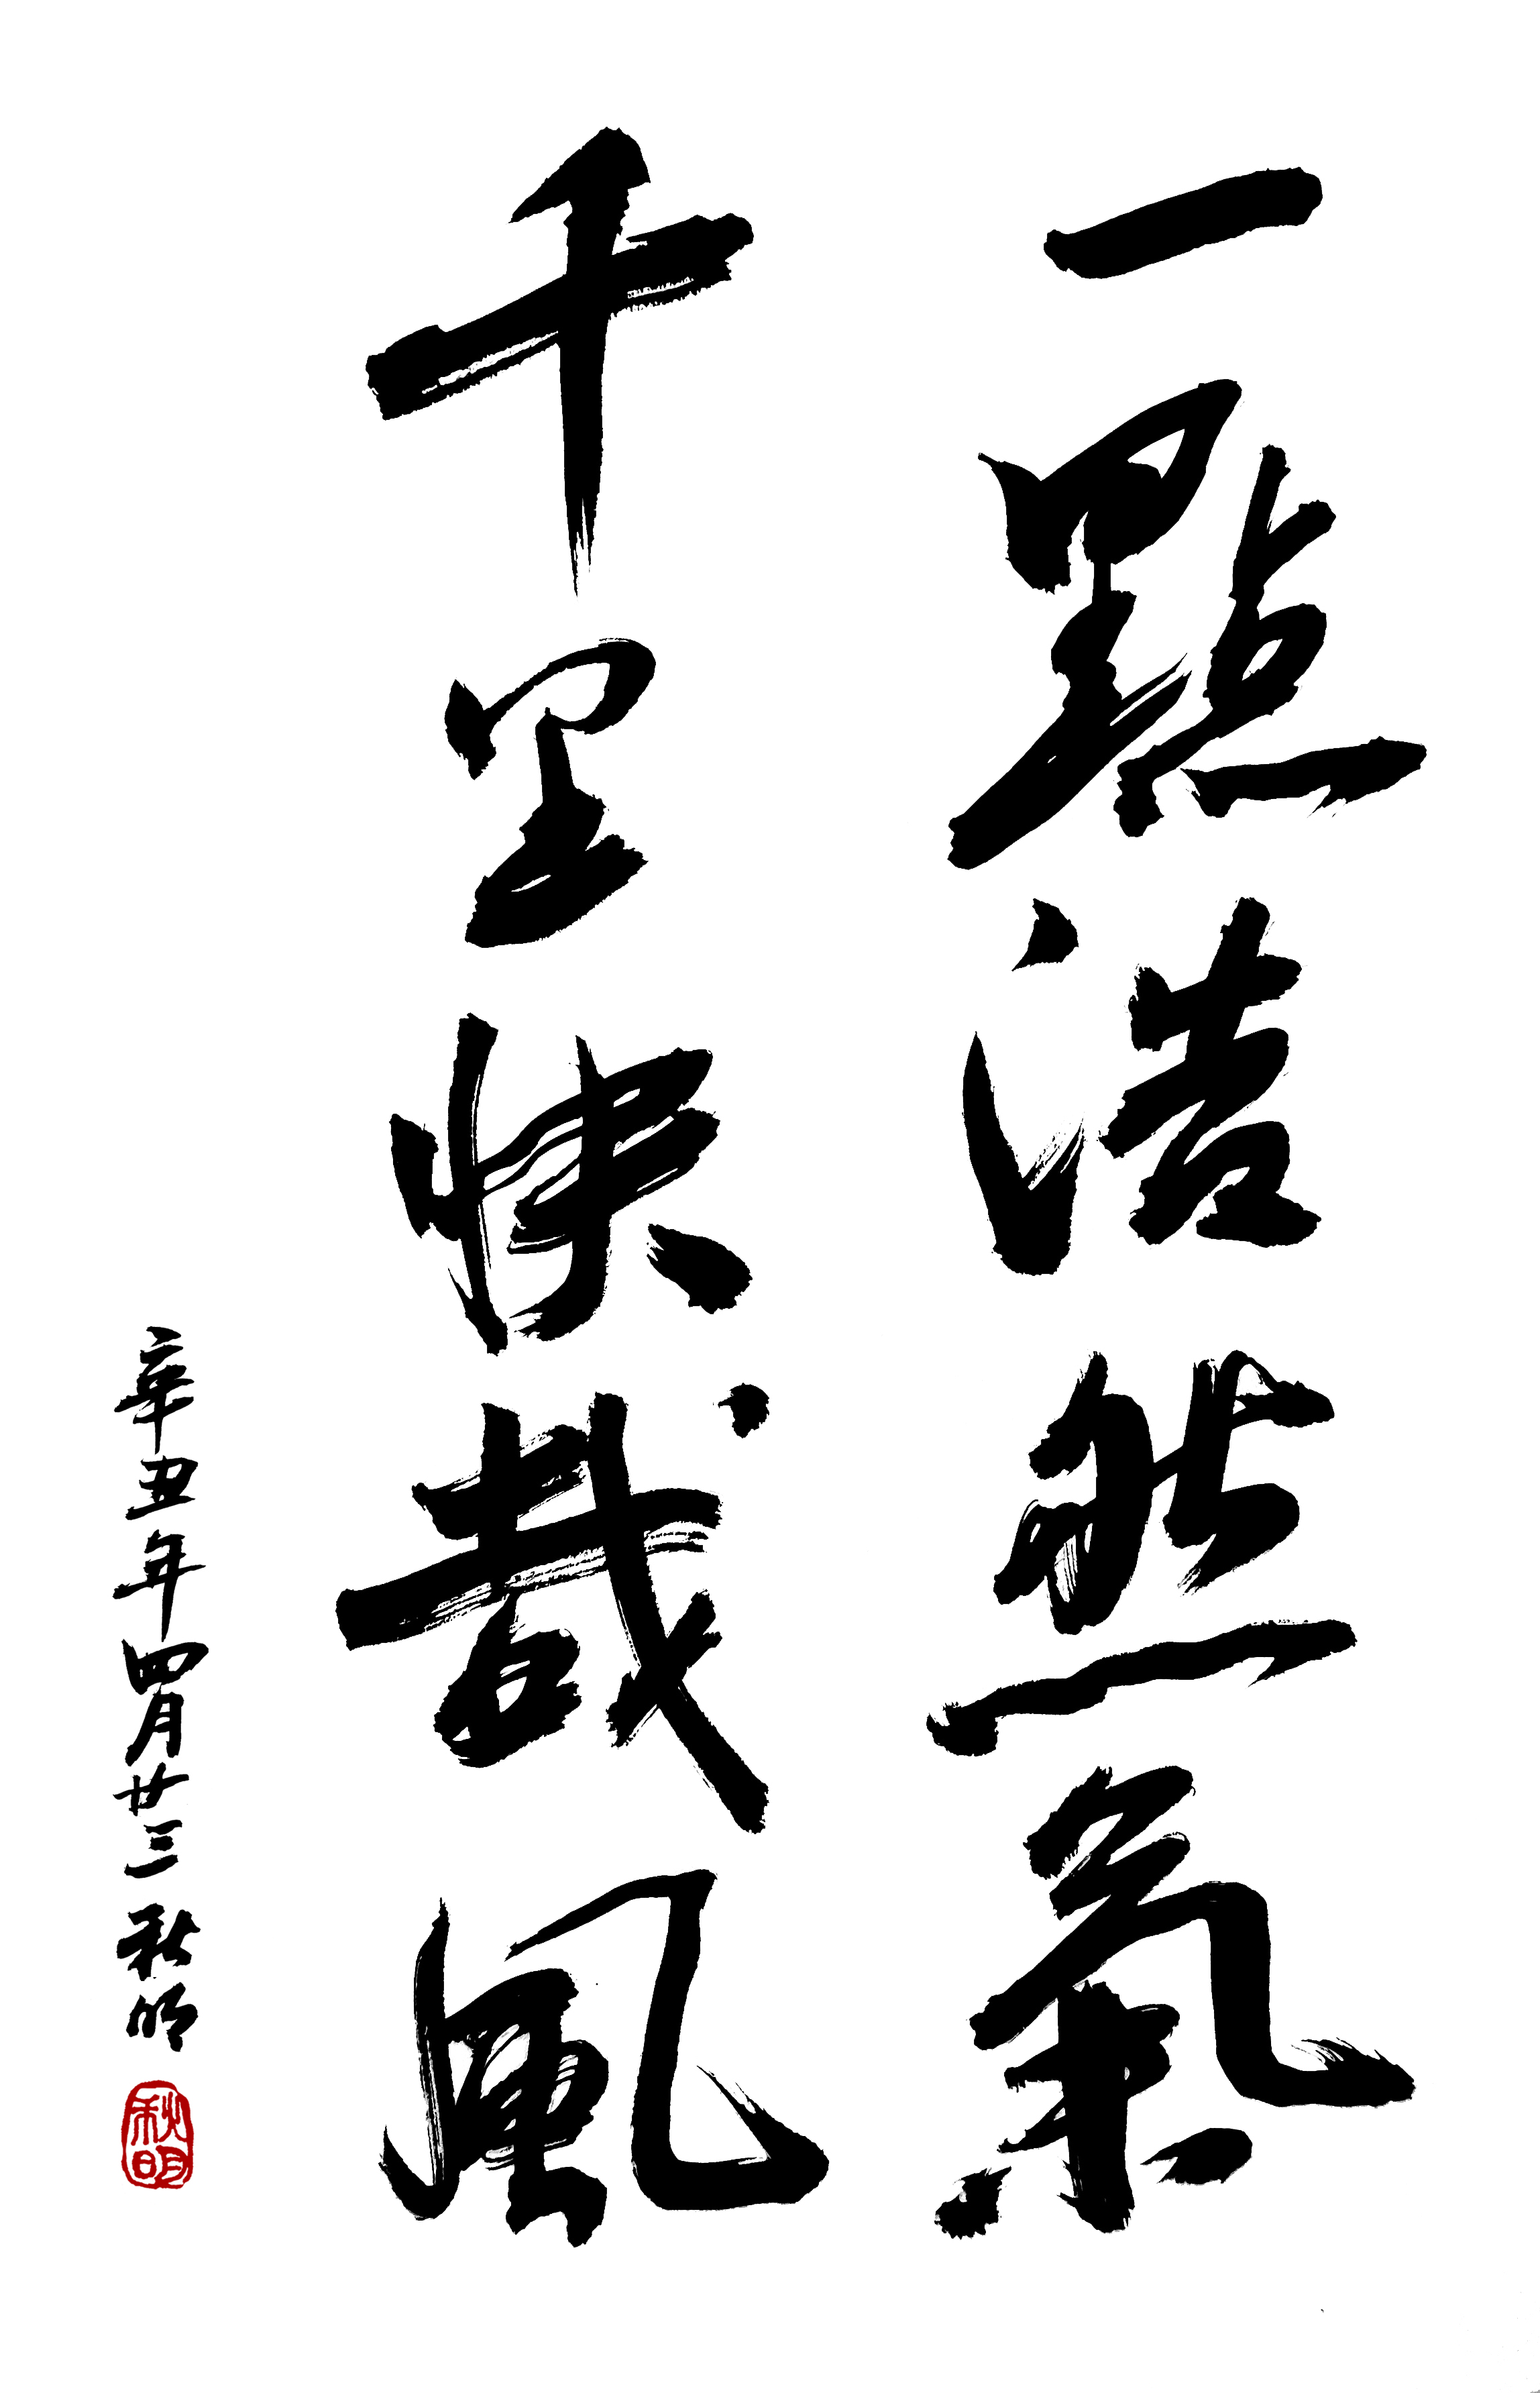 一點浩然氣
千里快哉風
辛丑年四月廿三 秋明
秋明